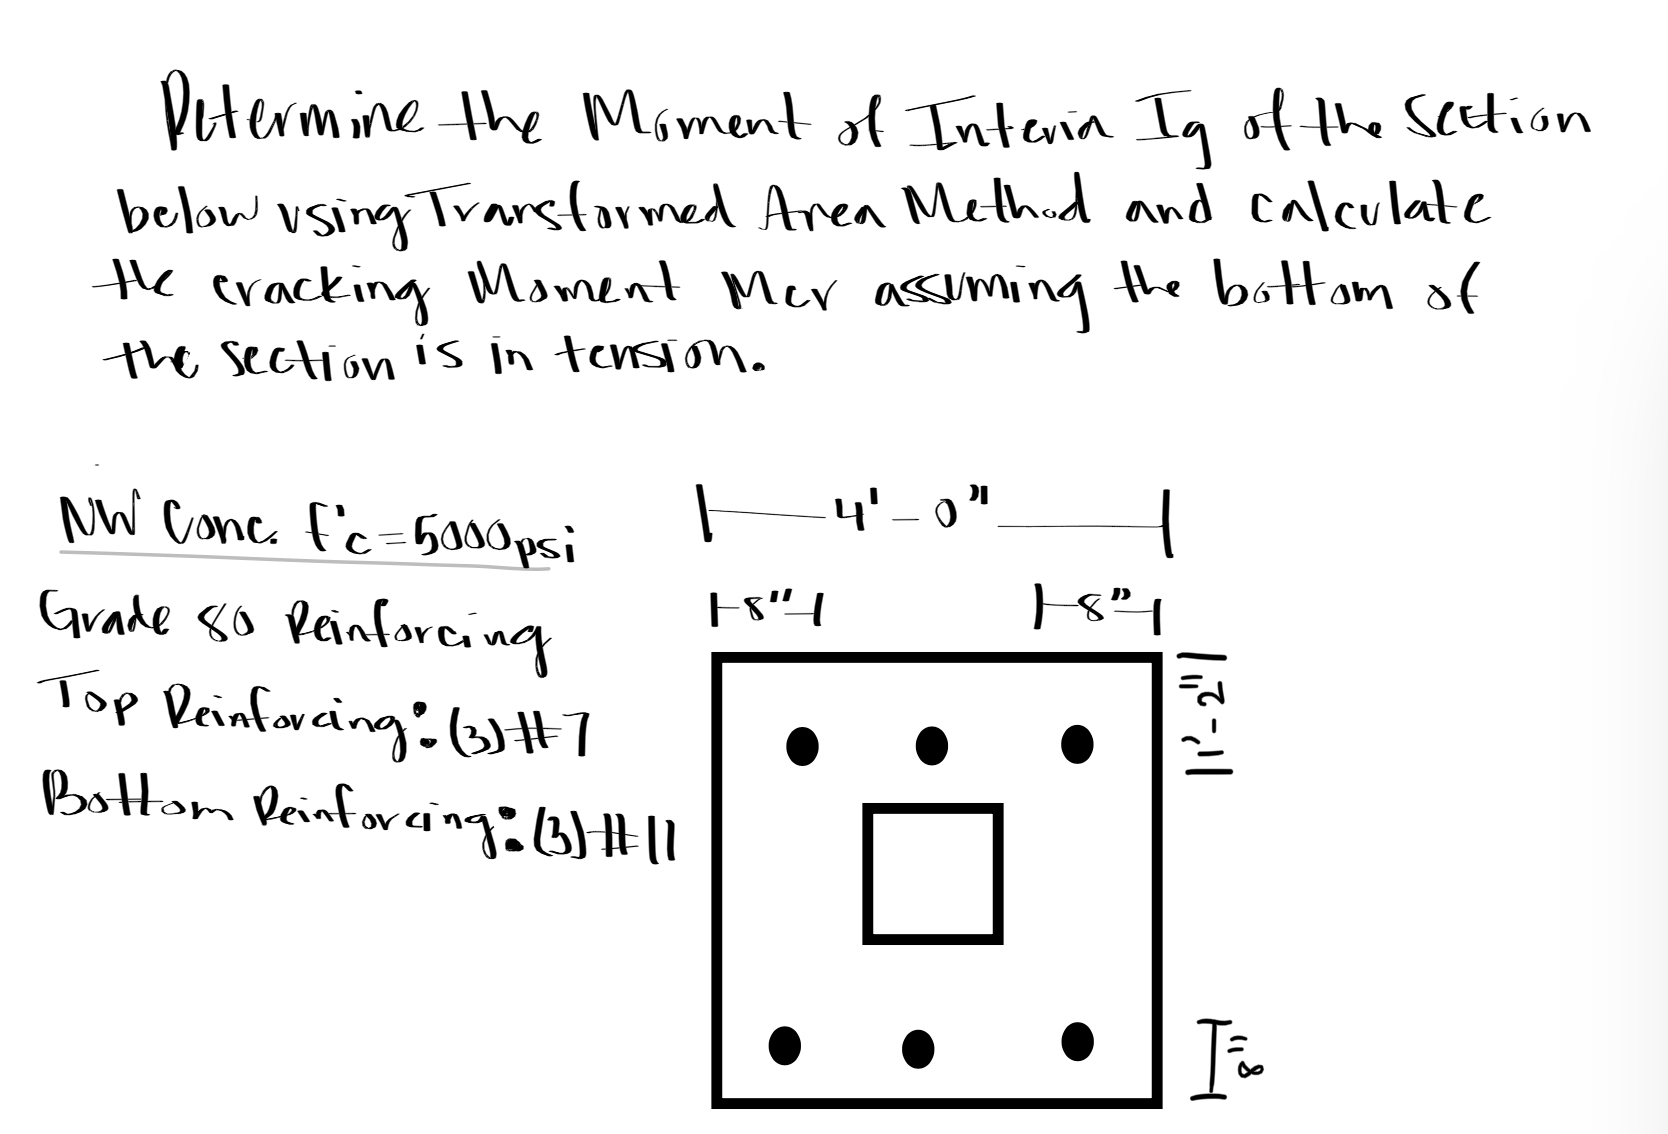 Determine the Moment of Interia Ig of the Section
below using Transformed Area Method and calculate
the cracking Moment Mcr assuming the bottom of
the section is in tension.
NW Conc. f'c=5000psi
Grade 80 Reinforcing
Top Reinforcing: (3)#7
Bottom Reinforcing: (3)#11
4'-0"
8" 8"
1'-2"
8"